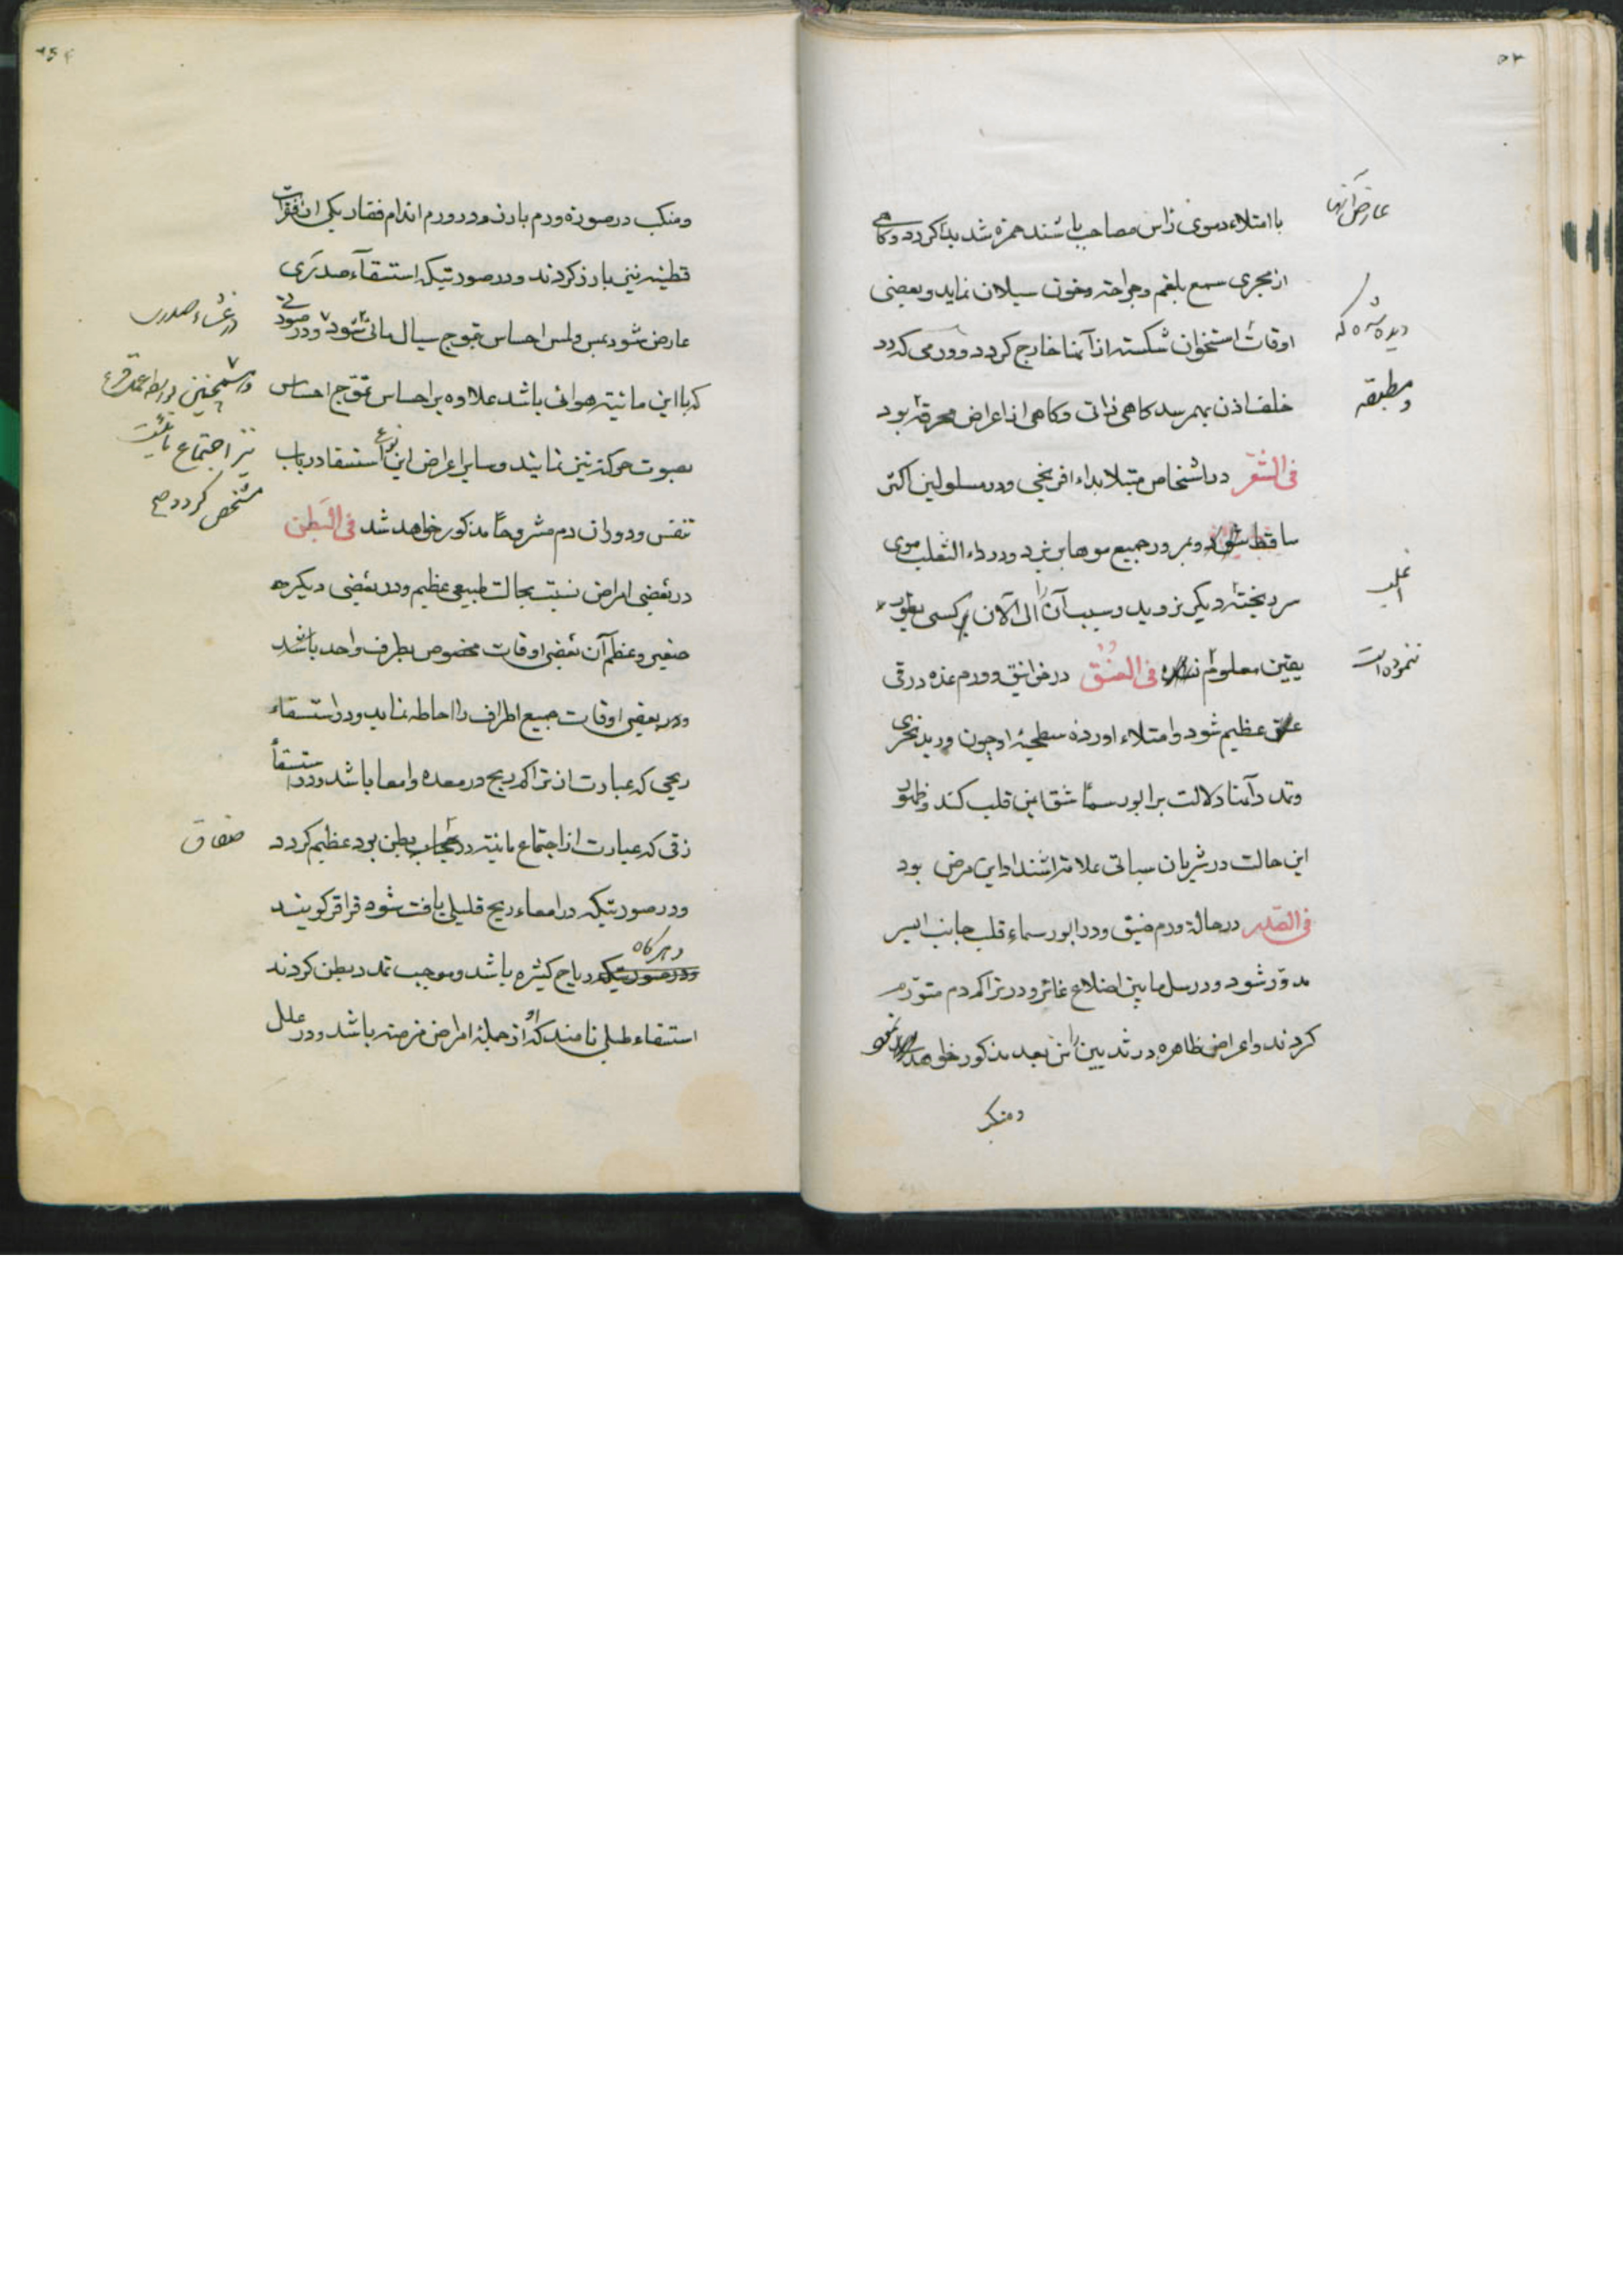 ۵۳
با امتلاء دموی راس مصاحب باشند حمره شدید کردد و کاهی
عارض آنها
از مجری سمع بلغم و جراحة و خون سیلان نماید و بعضی
اوقات استخوان شکسته از آنها خارج کردد و ورمی که در
دیده شده که
خلف اذن بهم رسد کاهی ذاتی و کاهی از اعراض محرقه بود
و مطبقه
فی الشعر در اشخاص مبتلا بداء افرنجی و در مسلولین اکثر
ساقط شود و بمرور جمیع موها بریزد و در داء الثعلب موی
سر ریخته دیکر نروید و سبب آن را الی الآن بر کسی بطور
یقین معلوم نشده فی العنق در خوانیق و ورم غده درقی
ننموده است
عنق عظیم شود و امتلاء اورده سطحیه او چون ورید نحری
و تمدد آنها دلالت بر ابورسما شقایین قلب کند و ظهور
این حالت در شریان سباتی علامة اشتداد این مرض بود
فی الصدر در حالة ورم ضیق و در ابورسماء قلب جانب ایسر
مدور شود و در سل مابین اضلاع غائر و در تراکم دم متورم
کردند و اعراض ظاهره در ثدیین را من بعد مذکور خواهد
و منکب
۵۴
و منکب در صورة ورم بارز و در ورم اندام فقار یکی از فقرات
قطنیه نیز بارز کردند و در صورتیکه استسقاء صدری
عارض شود بمس و لمس احساس تموج سیال مائی شود و در صورتی
در غشاء صدر
که با این مائیة هوائی باشد علاوه بر احساس تموج احساس
و همچنین
بصوت حرکة نیز نمایند و سایر اعراض این نوع استسقا در باب
نیز اجتماع مائیت
تنفس و دوران دم مشروحًا مذکور خواهد شد فی البطن
مشخص کردد صح
در بعضی امراض نسبت بحالت طبیعی عظیم و در بعضی دیکر
صغیر و عظم آن بعضی اوقات مخصوص بطرف واحد باشد
و در بعضی اوقات جمیع اطراف را احاطه نماید و در استسقاء
ریحی که عبارت از تراکم ریح در معده و امعا باشد و در استسقاء
زقی که عبارت از اجتماع مائیة در حجاب بطن بود عظیم کردد
صفاق
و در صورتیکه در امعاء ریح قلیلی یافت شود قراقر کویند
و هر کاه
و در صورتیکه ریاح کثیره باشد و موجب تمدد بطن کردند
استسقاء طبلی نامند که او از جملۀ امراض مزمنه باشد و در علل